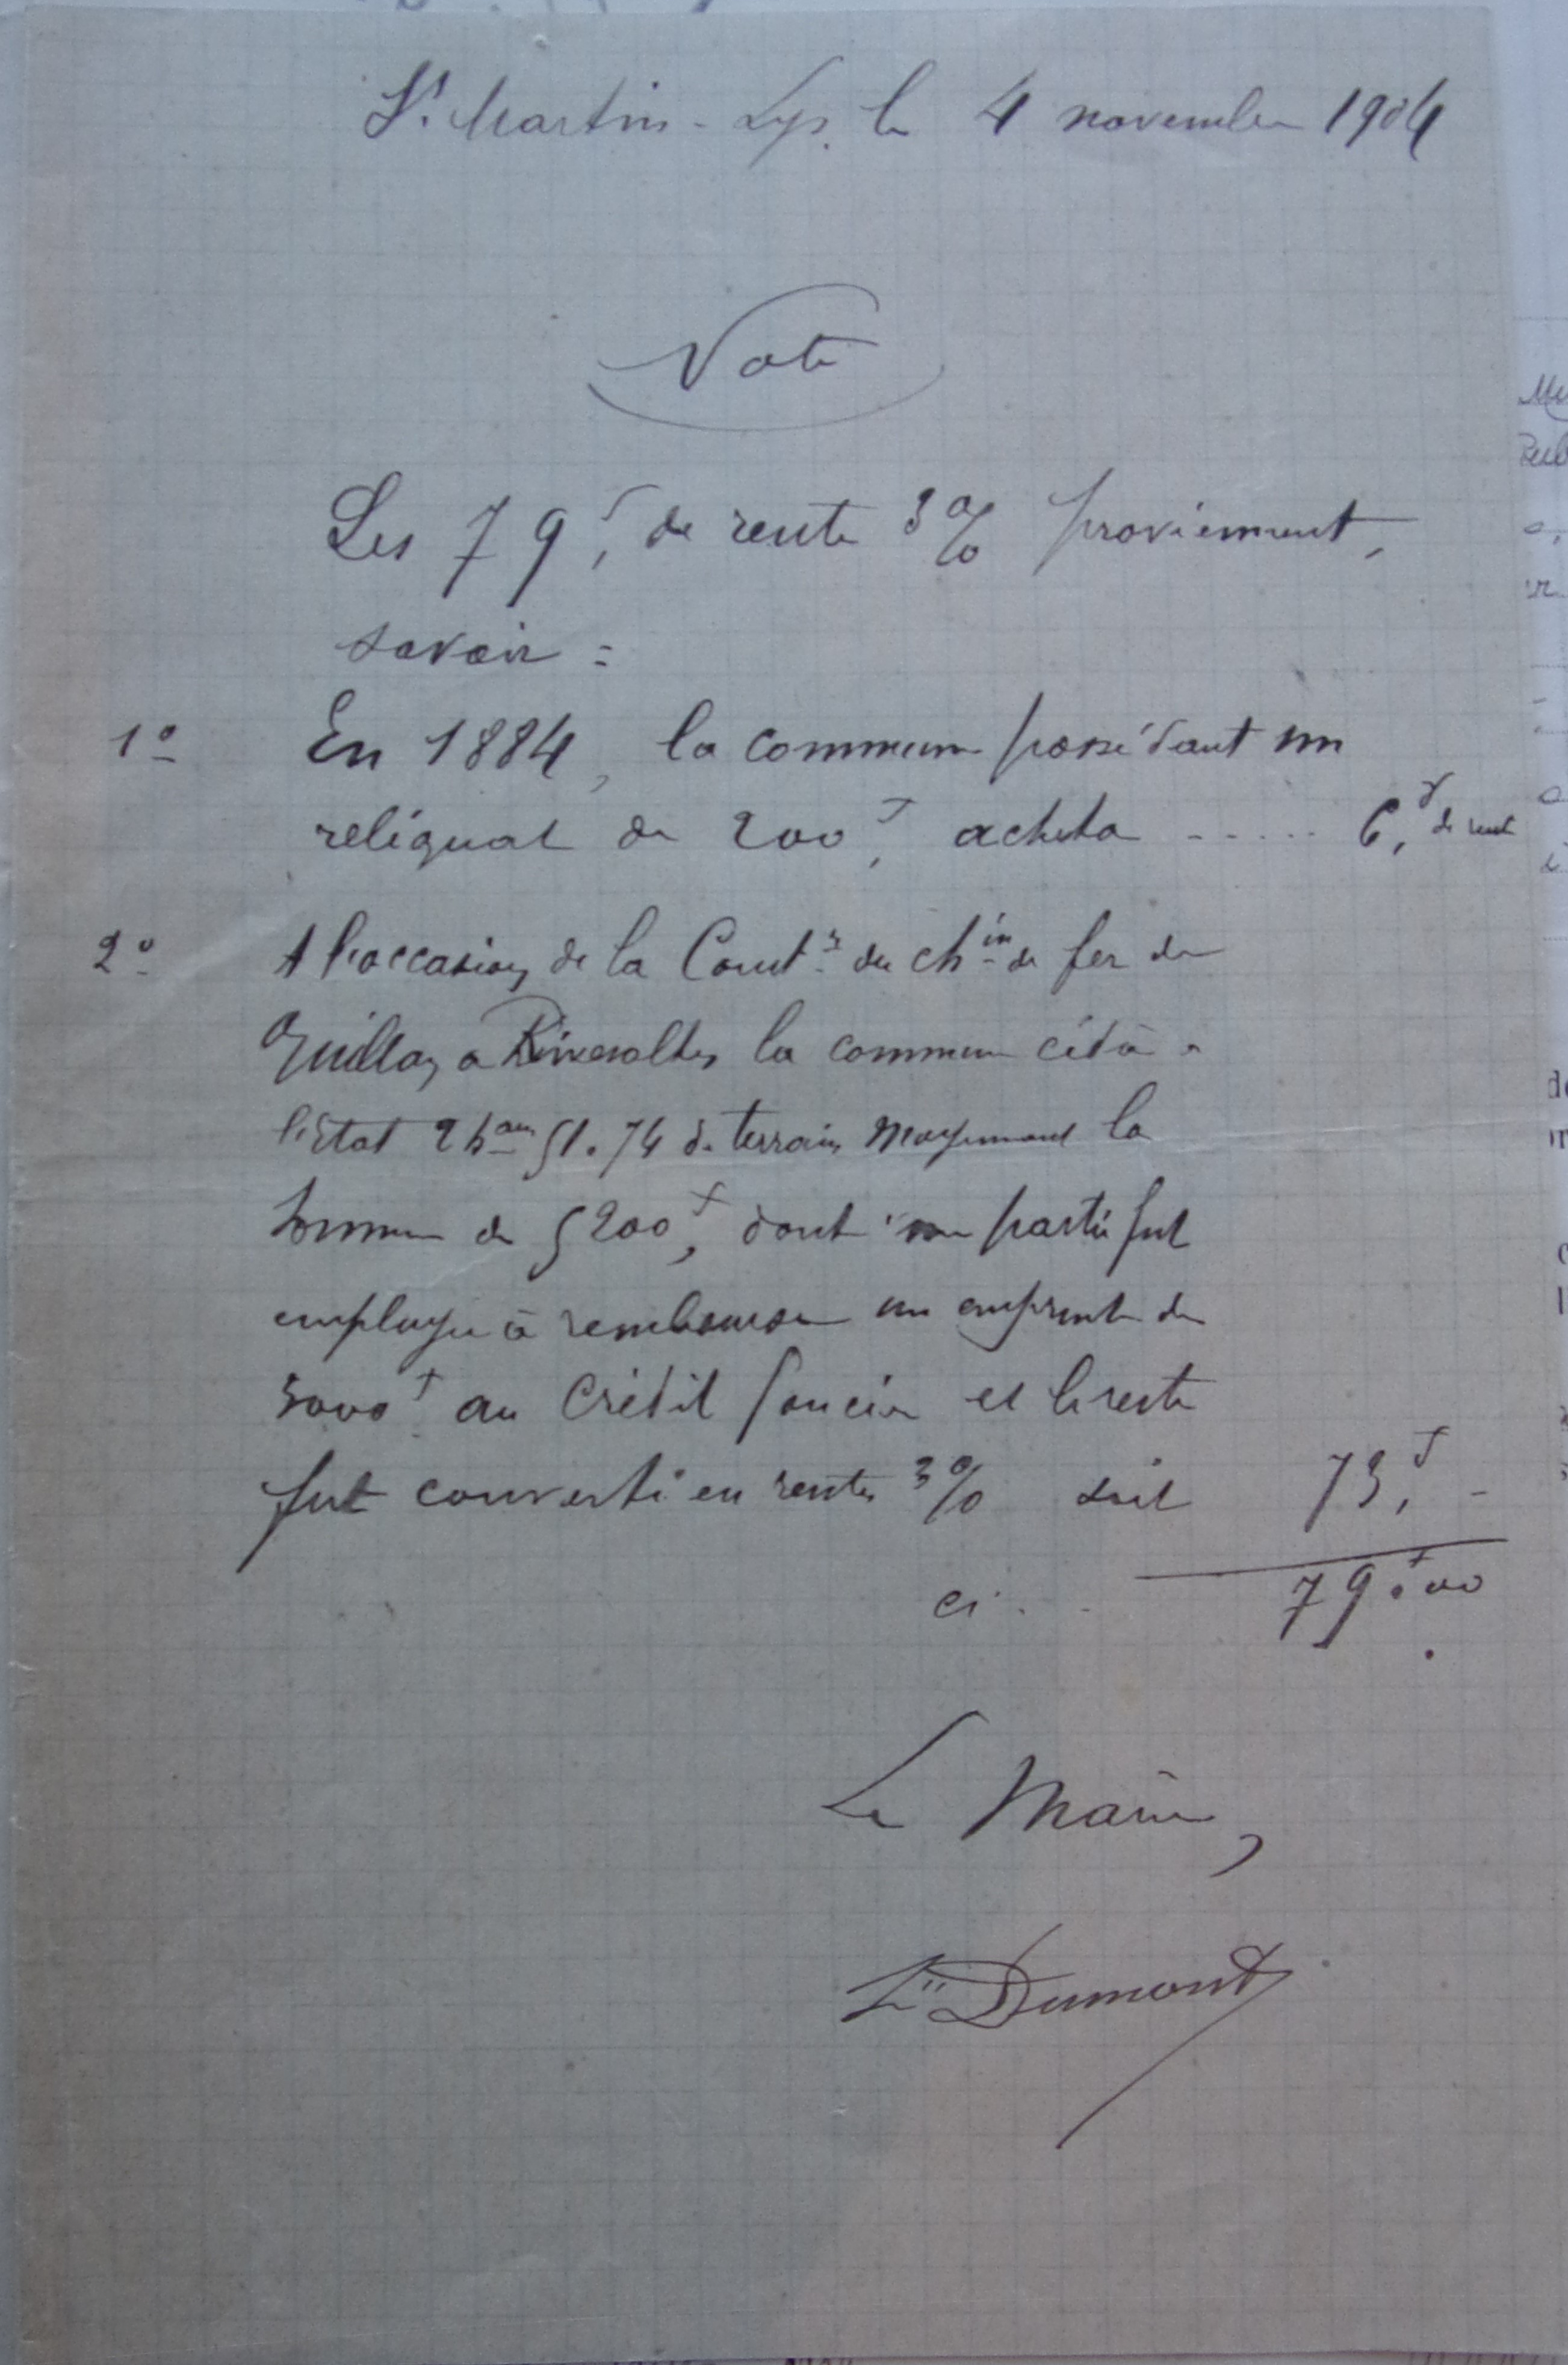 St. Martin-Lys, le 4 novembre 1904
Note
Les 79,f de rente 3% proviennent,
savoir :
1° En 1884, la commune possédant un
reliquat de 200,f acheta ...... 6,f de rente
2° A l'occasion de la Const.on du ch.in de fer de
Quillan à Rivesaltes la commune céda à
l'Etat 2 h.ares 51.74 de terrain moyennant la
somme de 5200,f dont une partie fut
employée à rembourser un emprunt de
3000f au Crédit foncier et le reste
fut converti en rentes 3% soit 73,f -
ci . . 79,f00
Le Maire,
Dumont